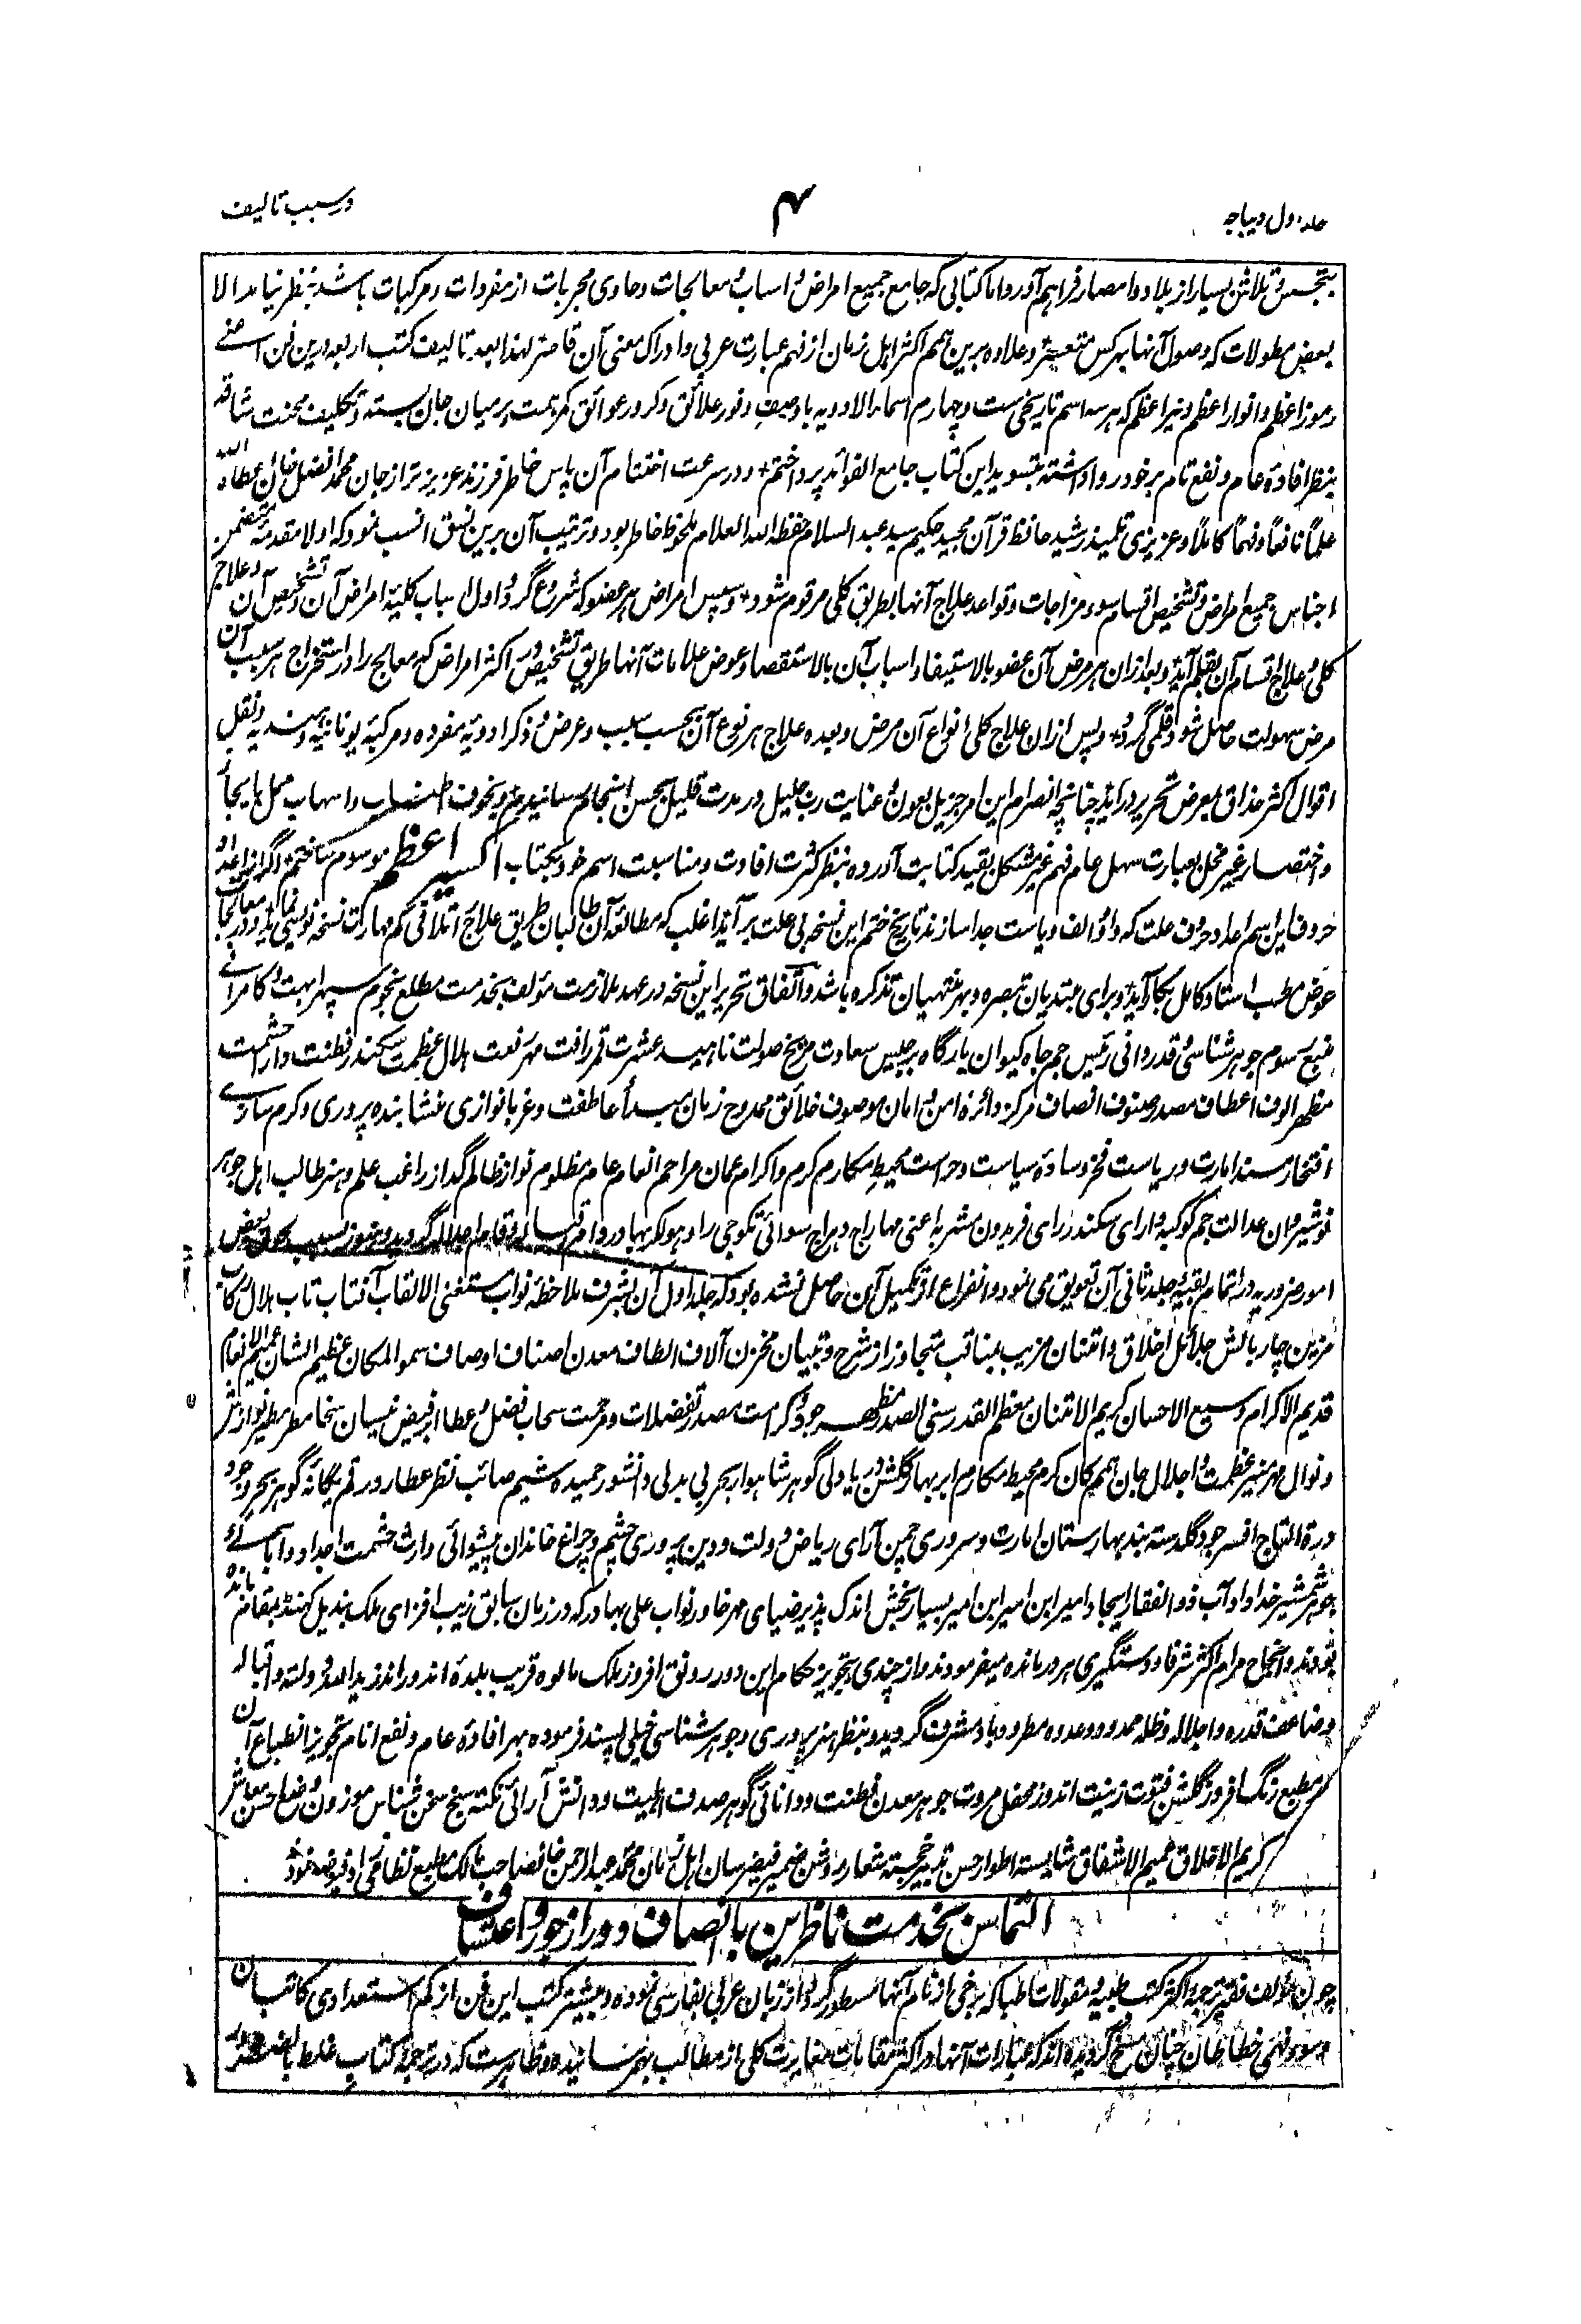 جلد اول دیباچه
۴
در سبب تالیف
بتجسس و تلاش بسیار از بلاد و امصار فراهم آورد اما کتابی که جامع جمیع امراض و اسباب و معالجات و حاوی مجربات از مفردات و مرکبات باشد بنظر نیامد الا
بعض مطولات که وصول آنها بهر کس متعسر و علاوه برین همم اکثر اهل زمان از فهم عبارت عربی و ادراک معنی آن قاصر لهذا بعد تالیف کتب اربعه درین فن اسمے
رموز اعظم و انوار اعظم و نیر اعظم که هر سه اسم تاریخی ست و چهارم اسماء الادویه با وصف وفور علائق و کرور عوائق کمر همت بر میان جان بسته و تکلیف محنت شاقه
بنظر افادهٔ عام و نفع تام بر خود روا داشته بتسوید این کتاب جامع الفوائد پرداختم و در سرعت اختتام آن پاس خاطر فرزند عزیز تر از جان محمد افضل خان اعطاه الله
علماً نافعاً و فهماً کاملاً و عزیزی تلمیذ رشید حافظ قرآن مجید حکیم سید عبد السلام حفظه الله العلام ملحوظ خاطر بود و ترتیب آن برین نسق انسب نمود که اولا مقدمهٔ متضمن
اجناس جمیع امراض و تشخیص اقسام سوء مزاجات و قواعد علاج آنها بطریق کلی مرقوم شود و سپس امراض هر عضو که شروع گردد اول اسباب کلیهٔ امراض آن و تشخیص آن و علاج
کلی و علاج اقسام آن بقلم آید و بعد ازان هر مرض آن عضو بالاستیفا و اسباب آن بالاستقصا و عوض علامات آنها طریق تشخیص در اکثر امراض که معالج را در استخراج هر سبب آن
مرض سهولت حاصل شود قلمی گردد و پس ازان علاج کلی انواع آن مرض و بعده علاج هر نوع آن بحسب سبب و عرض و ذکر ادویهٔ مفرده و مرکبهٔ یونانیه و هندیه و نقل
اقوال اکثر حذاق بمعرض تحریر درآید چنانچه انصرام این امر جزیل بعون و عنایت رب جلیل در مدت قلیل بحسن انجام رسانیدم و بخوف اطناب و اسهاب ممل بایجاز
و اختصار غیر مخل بعبارت سهل عام فهم غیر مشکل بقید کتابت آورده بنظر کثرت افادت و مناسبت اسم خود بکتاب اکسیر اعظم موسوم ساختم اگر از اعداد
حروف این اسم اعداد حروف علت که واو الف و یاست جدا سازند تاریخ ختم این نسخهٔ بی علت برآید اغلب که مطالعهٔ آن طالبان طریق علاج اتلافی کم مهارت نسخه نویسی نماید و در معالجات
عوض مطب استاد کامل بکار آید و برای مبتدیان تبصره و بهر منتهیان تذکره باشد و اتفاق تحریر این نسخه در عهد ملازمت مؤلف بخدمت مطلع نجوم سپهر همت و کامرانے
منبع رسوم جوهر شناسی و قدردانی رئیس جم جاه کیوان بارگاه برجیس سعادت مریخ صولت ناهید عشرت قمر رافت مهر رفعت هلال عظمت سکندر فطنت دارا حشمت
مظهر الوف اعطاف مصدر صنوف انصاف مرکز دائرهٔ امن و امان موصوف خلائق ممدوح زمان مبدأ عاطفت و غربا نوازی منشا بنده پروری و کرم سازے
افتخار مسند امارت و ریاست فخر وسادهٔ سیاست و حراست محیط مکارم کرم و اکرام عمان مراحم انعام عام مظلوم نواز ظالم گداز راغب علم و هنر طالب اهل جوهر
نوشیروان عدالت جم کوکبه دارای سکندر رای فریدون مشربه اعنی مهاراج دهراج سوائی تکوجی راو هولکر بهادر دام اقباله و اقام اجلاله گردید و هنوز بسبب لحوق بعض
امور ضروریه در اتمام بقیهٔ جلد ثانی آن تعویق می نمود و انفراغ از تکمیل آن حاصل نشده بود که جلد اول آن بشرف ملاحظهٔ نواب مستغنی الالقاب آفتاب تاب هلال رکاب
مزین چار بالش جلائل اخلاق و امتنان مرتب بمناقب متجاوز از شرح و تبیان مخزن آلاف الطاف معدن اصناف اوصاف سمو المکان عظیم الشان عمیم الانعام
قدیم الاکرام وسیع الاحسان کریم الامتنان معظم القدر سنی الصدر مظهر جود و کرامت مصدر تفضلات و مرحمت سحاب فضل و عطا ابر فیض نیسان سخا مطر مطیر نوازش
و نوال مهر منیر عظمت و اجلال جان همم کان کرم محیط مکارم ابر بهار گلشن دریا دلی گوهر شاهوار بحر بی بدلی دانشور حمیده شیم صائب نظر عطارد رقم یگانه گوهر بحر وجود
درة التاج افسر جود گلدسته بند بهارستان امارت و سروری چمن آرای ریاض دولت و دین پروری چشم و چراغ خاندان پیشوائی وارث حشمت اجداد و آبائے
جوهر شمشیر خداداد آب ذو الفقار ایجاد امیر ابن امیر ابن امیر بسیار بخش اندک پذیر ضیای مهر خاور نواب علی بهادر که در زمان سابق زیب افزای ملک بندیل کهنڈ بمقام باندہ
بودند و انجاح مرام اکثر شرفا و دستگیری هر درمانده میفرمودند و از چندی بتجویز حکام این دور رونق افروز ملک مالوه قریب بلدهٔ اندور اند زید الله دولته و اقباله
و ضاعف قدره و اجلاله و ظله ممدود و عدوه مطرود باد مشرف گردید و بنظر هنر پروری و جوهر شناسی خیلی پسند فرموده بهر افادهٔ عام و نفع انام تجویز انطباع آن
در مطبع رنگ افروز گلشن فتوت زینت اندوز محفل مروت جوهر معدن فطنت و دانائی گوهر صدف اهلیت و دانش آرائی نکته سنج سخن شناس موزون وضع احسن معاشر
کریم الاخلاق عمیم الاشفاق شایسته اطوار حسن تدبیر خجسته شعار روشن ضمیر فیض رسان اهل زمان محمد عبد الرحمن خانصاحب مالک مطبع نظامی ادام فیوضه نمود
التماس بخدمت ناظرین با انصاف دور از جور و اعتساف
چون مؤلف فقیر ترجمهٔ اکثر کتب طبیه و مقولات اطبا که برخی از نام آنها مسطور گردد از زبان عربی بفارسی نموده و بیشتر کتب این فن از کم استعدادی کاتبان
و سوء فهمی خطاطان چنان مسخ گردیده اند که عبارات آنها در اکثر مقامات مغایرت کلی از مطالب بهم رسانیده و ظاهرست که در ترجمهٔ کتاب غلط